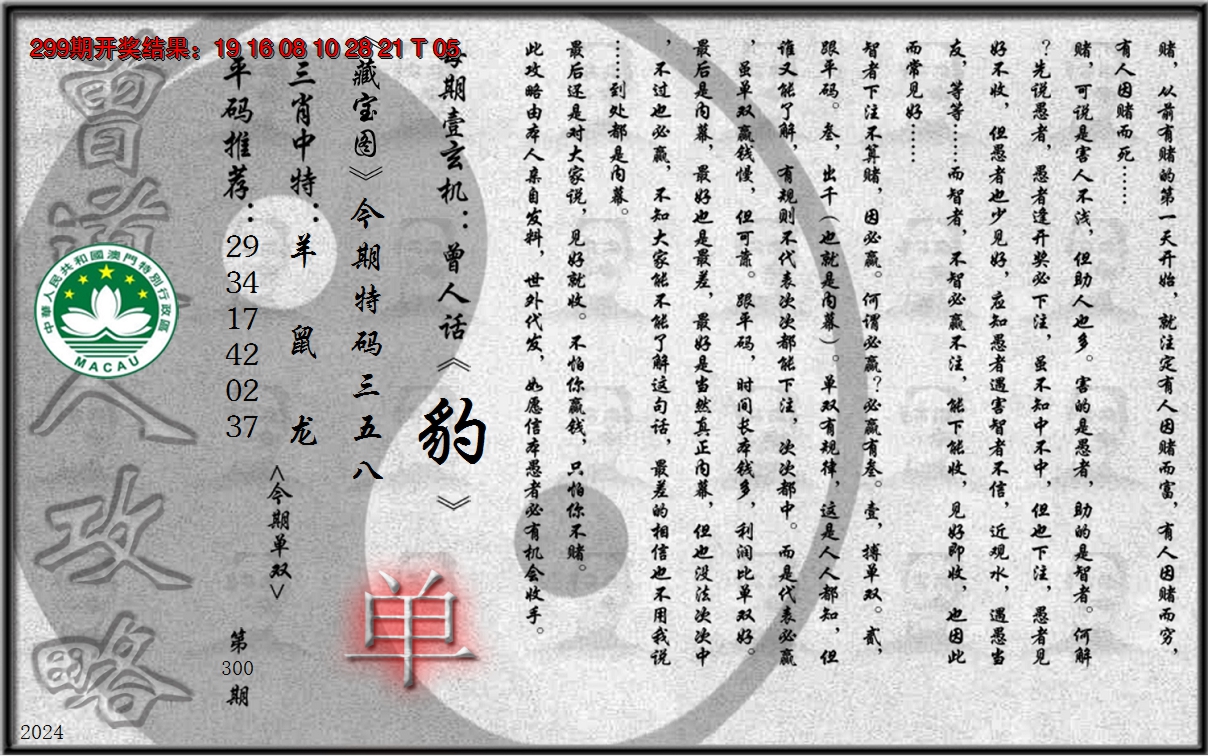 299期开奖结果：19 16 08 10 28 21 T 05
赌，从前有赌的第一天开始，就注定有人因赌而富，有人因赌而穷，
有人因赌而死……
赌，可说是害人不浅，但助人也多。害的是愚者，助的是智者。何解
？先说愚者，愚者逢开奖必下注，虽不知中不中，但也下注，愚者见
好不收，但愚者也少见好，应知愚者遇害智者不信，近观水，遇愚当
友，等等……而智者，不智必赢不注，能下能收，见好即收，也因此
而常见好……
智者下注不算赌，因必赢。何谓必赢？必赢有叁。壹，搏单双。贰，
跟平码。叁，出千（也就是内幕）。单双有规律，这是人人都知，但
谁又能了解，有规则不代表次次都能下注，次次都中。而是代表必赢
，虽单双赢钱慢，但可靠。跟平码，时间长本钱多，利润比单双好。
最后是内幕，最好也是最差，最好是当然真正内幕，但也没法次次中
，不过也必赢，不知大家能不能了解这句话，最差的相信也不用我说
……到处都是内幕。
最后还是对大家说，见好就收。不怕你赢钱，只怕你不赌。
此攻略由本人亲自发料，世外代发，如愿信本愚者必有机会收手。
每期壹玄机：曾人话《豹》
《藏宝图》今期特码三五八
三肖中特：羊 鼠 龙
<今期单双>
单
平码推荐：29 34 17 42 02 37
第300期
曾道人攻略
中華人民共和國澳門特別行政區
MACAU
2024